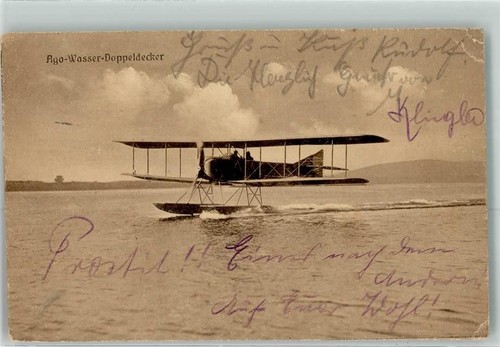 Ago-Wasser-Doppeldecker
Gruß u Kuß Rudolf.
Die Herzlich
Klingler
Prosit!! Einer nach dem
Andern.
Auf Euer Wohl!